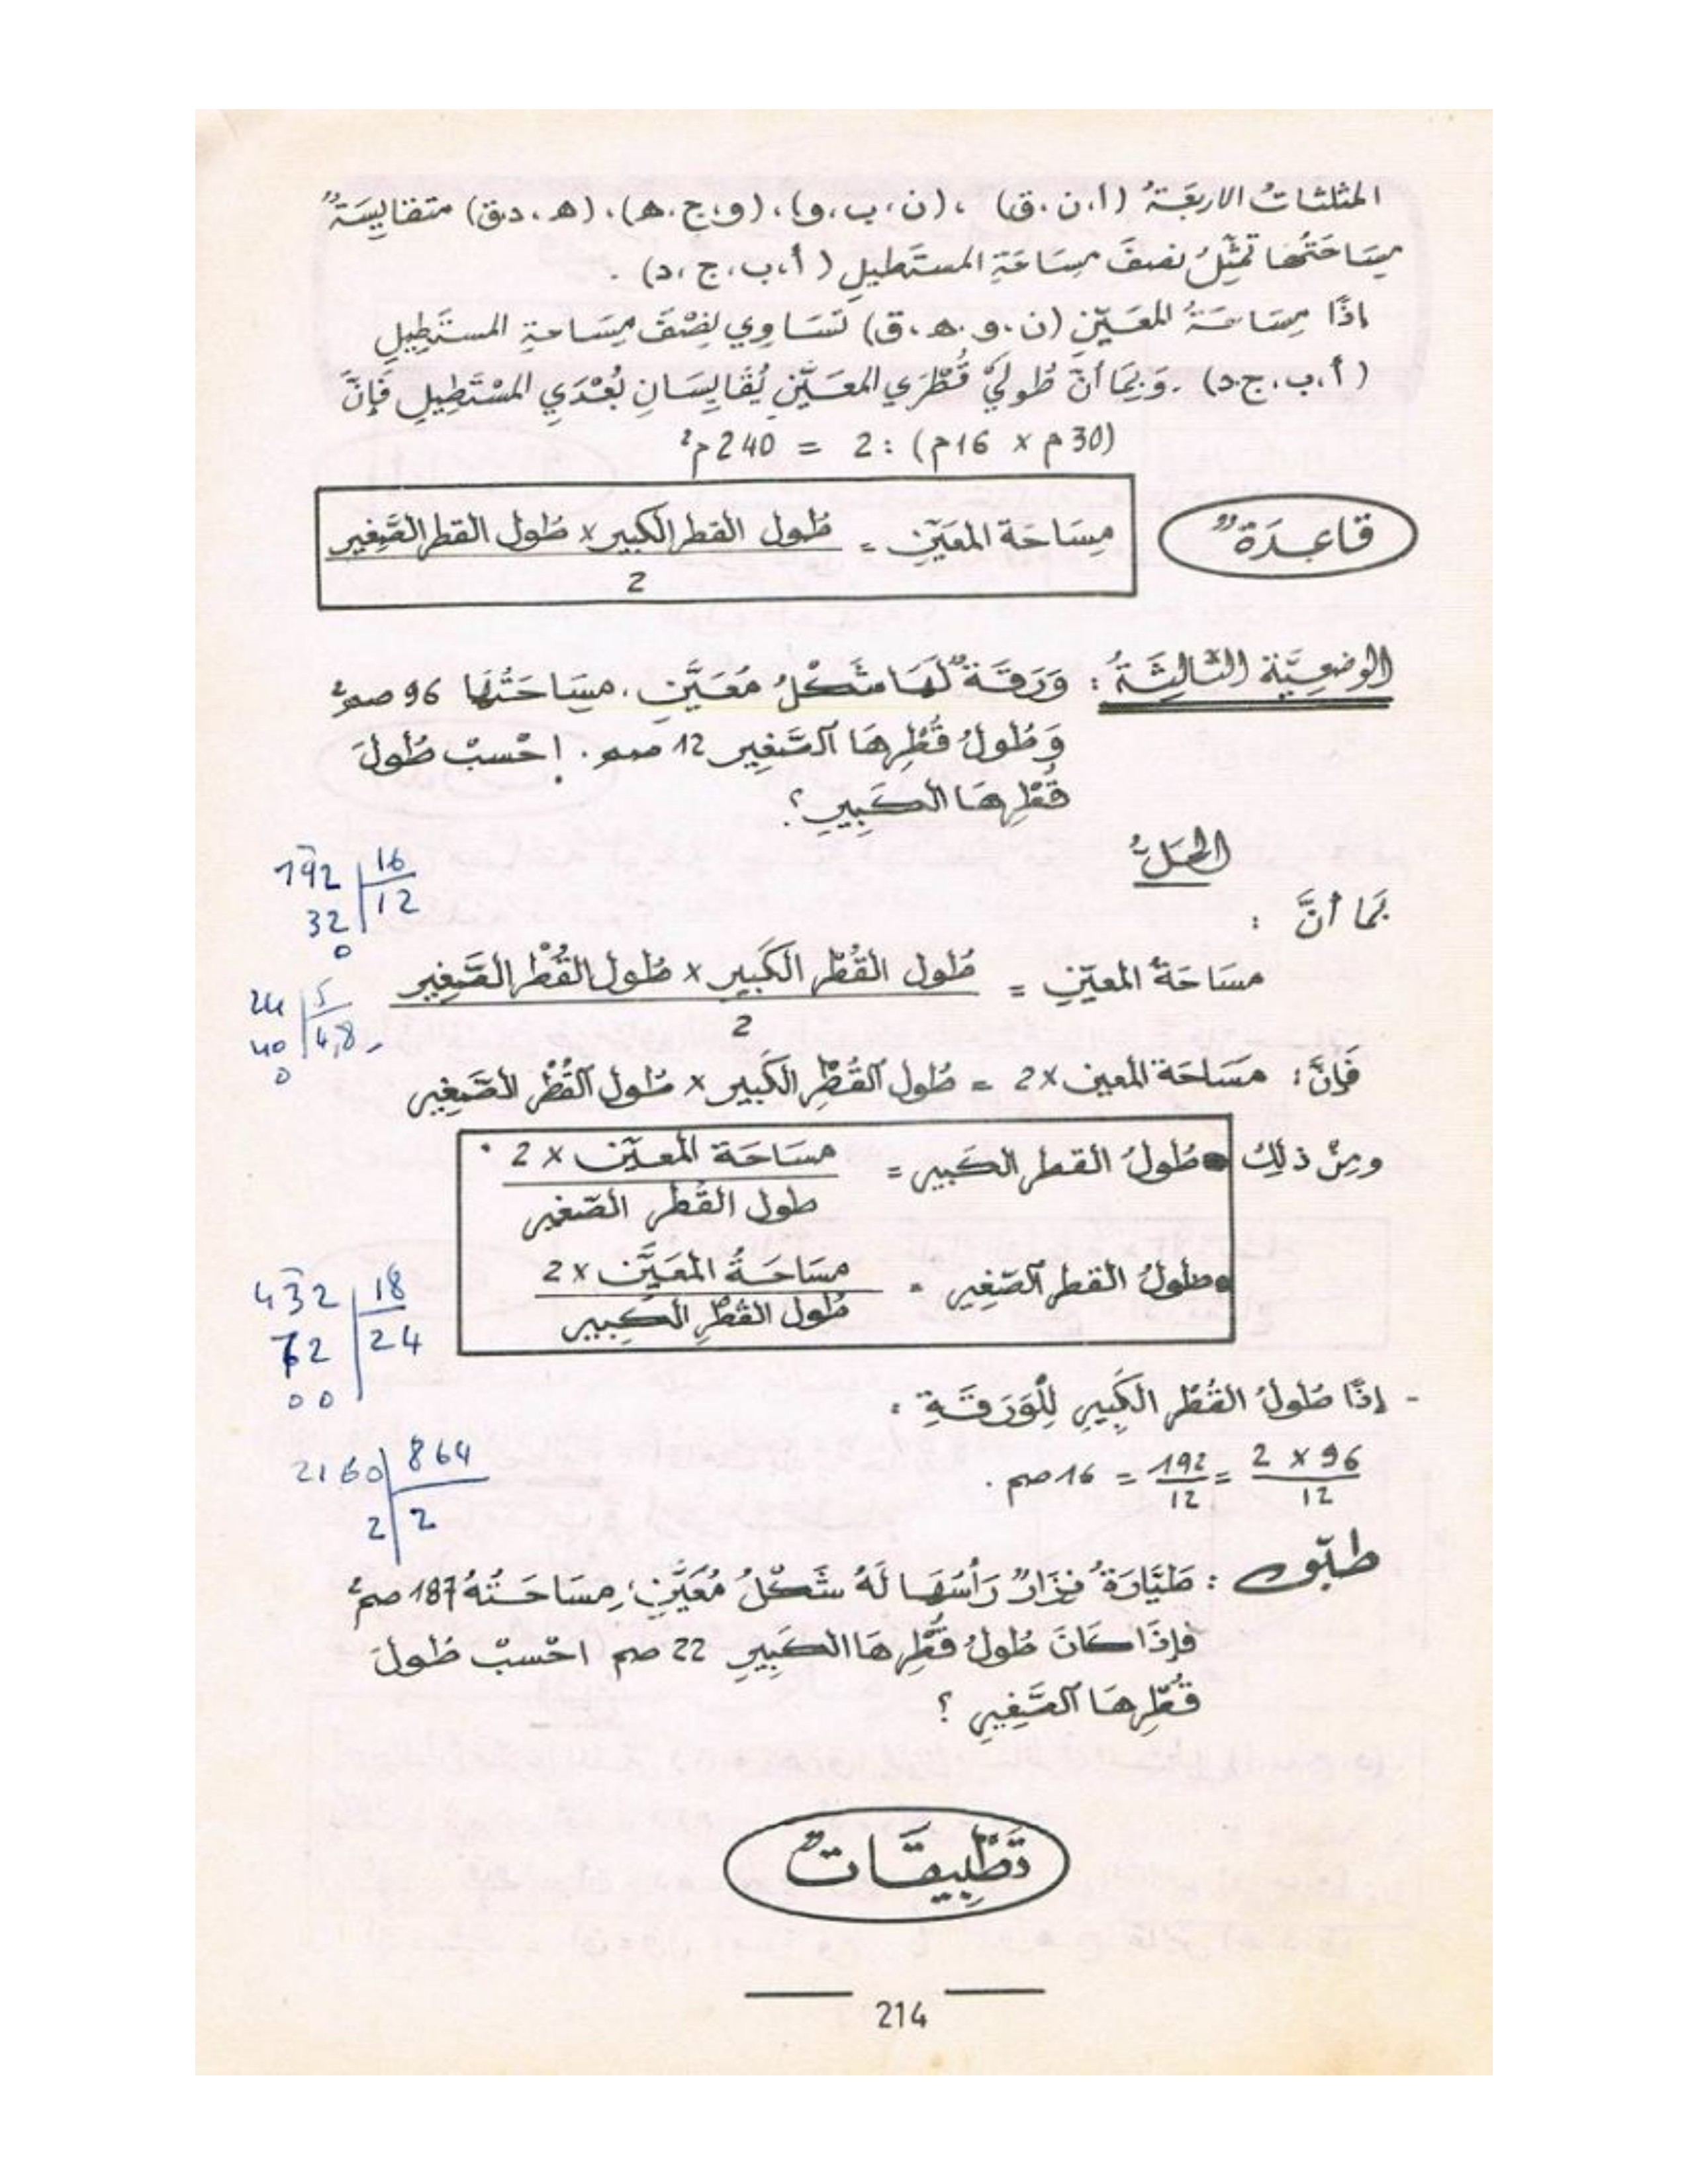 المثلثاتُ الاربعَةُ (أ.ن.ق) ، (ن.ب.و)، (و.ج.ه)، (ه.د.ق) متقايِسَةٌ
مِسَاحَتُهَا تمثِّلُ نصفَ مِسَاحَةِ المستَطيلِ (أ.ب.ج.د) .
اذًا مِسَاحَةُ المعَيّنِ (ن.و.ه.ق) تسَاوِي نِصْفَ مِسَاحةِ المستَطِيلِ
(أ.ب.ج.د) . وَبِمَا أنّ طُولَيْ قُطْرَي المعَيَّنِ يُقَايِسَانِ بُعْدَي المسْتَطِيلِ فَإِنَّ
(30م × 16م) : 2 = 240م²
قَاعِدَةٌ
مِسَاحَة المعَيّنِ = طُول القطر الكَبير × طُول القطر الصَّغِير
2
الوضعِيَّة الثَّالِثَةُ : وَرَقَةٌ لَهَا شَكْلُ مُعَيَّنٍ . مِسَاحَتُهَا 96 صم²
وَطُولُ قُطْرِهَا الصَّغِير 12 صم . اِحْسبْ طُولَ
قُطْرِهَا الكَبِيرِ ؟
الحَلُّ
بمَا أنَّ :
192 | 16
32 | 12
0
مسَاحَةُ المعيّنِ = طُول القُطْر الكَبِير × طُول القُطْر الصَّغِير
2
24 | 5
40 | 4,8
0
فَإنَّ : مسَاحَة المعين × 2 = طُول القُطْرِ الكَبِير × طُول القُطْر الصَّغِير
ومِنْ ذلِكَ • طُولُ القطر الكَبِير = مسَاحَة المعيّن × 2
طول القُطر الصّغير
• طولُ القطر الصّغِير = مسَاحَةُ المعَيَّن × 2
طُول القُطْرِ الكَبِير
432 | 18
72 | 24
00
- إذًا طُولُ القُطْر الكَبِيرِ لِلْوَرَقَةِ :
2 × 96 / 12 = 192 / 12 = 16 صم .
2160 | 864
2 | 2
طبّق : طَيَّارَةُ نِزَارٌ رَأْسُهَا لَهُ شَكْلُ مُعَيَّنٍ ، مِسَاحَتُهُ 187 صم²
فإذَا كَانَ طُولُ قُطْرِهَا الكَبِيرِ 22 صم احْسبْ طُولَ
قُطْرِهَا الصَّغِيرِ ؟
تَطْبِيقَاتٌ
214